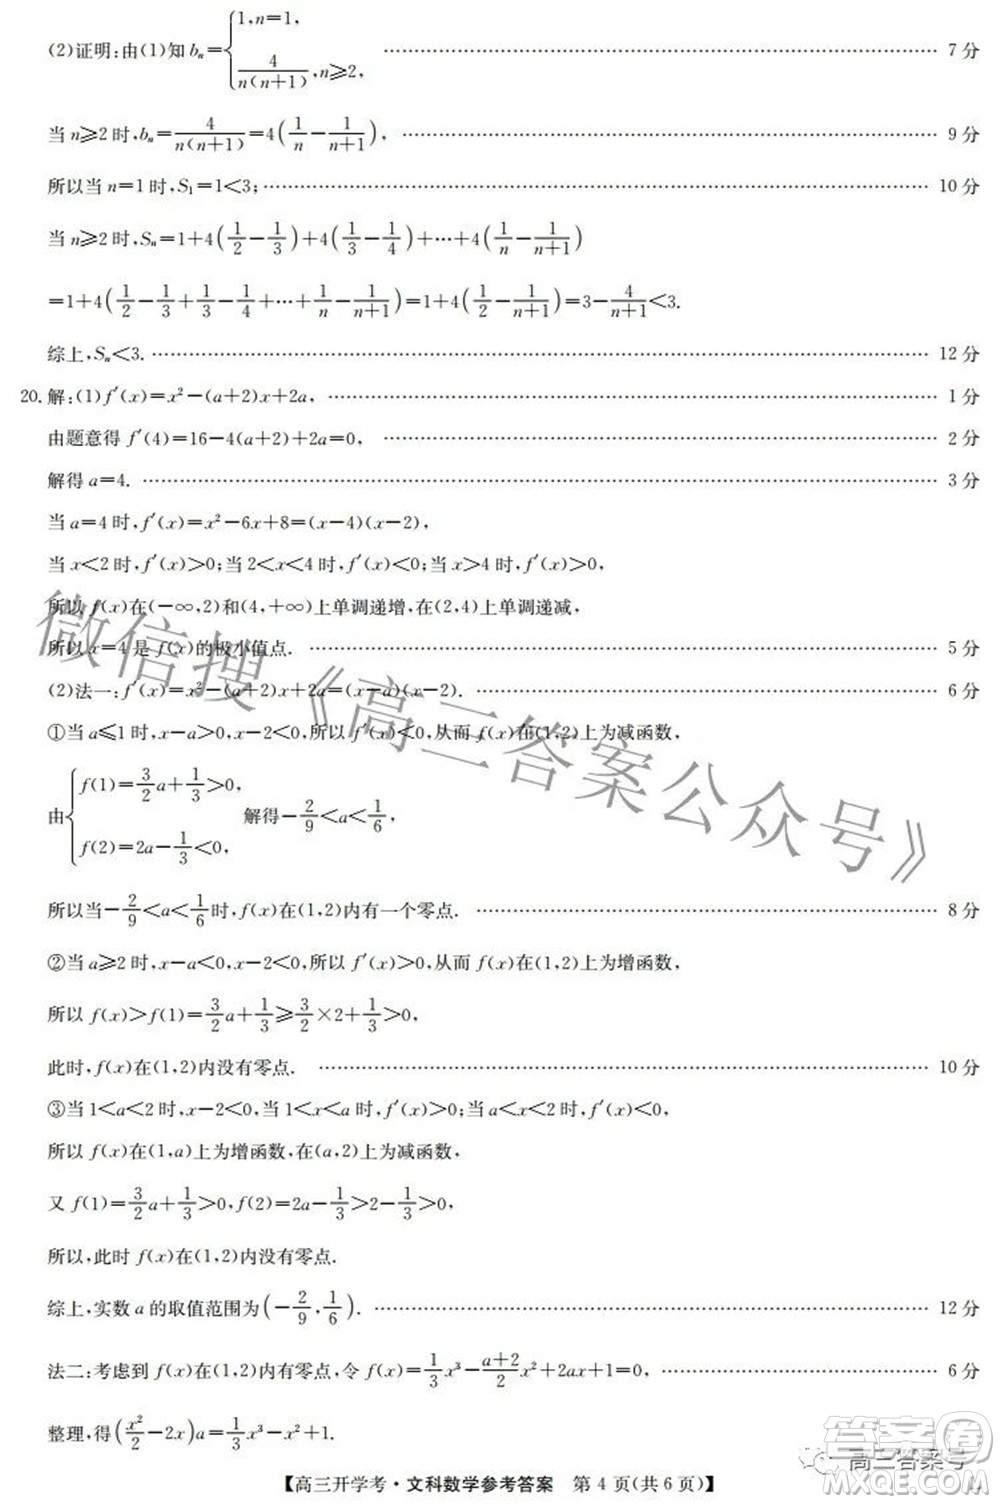 (2)证明:由(1)知 bₙ={1,n=1, 4/(n(n+1)),n≥2, …… 7 分
当 n≥2 时,bₙ=4/(n(n+1))=4(1/n−1/(n+1)), …… 9 分
所以当 n=1 时,S₁=1<3; …… 10 分
当 n≥2 时,Sₙ=1+4(1/2−1/3)+4(1/3−1/4)+…+4(1/n−1/(n+1))
=1+4(1/2−1/3+1/3−1/4+…+1/n−1/(n+1))=1+4(1/2−1/(n+1))=3−4/(n+1)<3.
综上,Sₙ<3. …… 12 分
20. 解:(1)f′(x)=x²−(a+2)x+2a, …… 1 分
由题意得 f′(4)=16−4(a+2)+2a=0, …… 2 分
解得 a=4. …… 3 分
当 a=4 时,f′(x)=x²−6x+8=(x−4)(x−2),
当 x<2 时,f′(x)>0;当 2<x<4 时,f′(x)<0;当 x>4 时,f′(x)>0,
所以 f(x)在(−∞,2)和(4,+∞)上单调递增,在(2,4)上单调递减,
所以 x=4 是 f(x)的极小值点. …… 5 分
(2)法一:f′(x)=x²−(a+2)x+2a=(x−a)(x−2). …… 6 分
①当 a≤1 时,x−a>0,x−2<0,所以 f′(x)<0,从而 f(x)在(1,2)上为减函数,
由{f(1)=3/2a+1/3>0, f(2)=2a−1/3<0, 解得−2/9<a<1/6,
所以当−2/9<a<1/6时,f(x)在(1,2)内有一个零点. …… 8 分
②当 a≥2 时,x−a<0,x−2<0,所以 f′(x)>0,从而 f(x)在(1,2)上为增函数,
所以 f(x)>f(1)=3/2a+1/3≥3/2×2+1/3>0,
此时,f(x)在(1,2)内没有零点. …… 10 分
③当 1<a<2 时,x−2<0,当 1<x<a 时,f′(x)>0;当 a<x<2 时,f′(x)<0,
所以 f(x)在(1,a)上为增函数,在(a,2)上为减函数,
又 f(1)=3/2a+1/3>0,f(2)=2a−1/3>2−1/3>0,
所以,此时 f(x)在(1,2)内没有零点.
综上,实数 a 的取值范围为(−2/9,1/6). …… 12 分
法二:考虑到 f(x)在(1,2)内有零点,令 f(x)=1/3x³−(a+2)/2x²+2ax+1=0, …… 6 分
整理,得(x²/2−2x)a=1/3x³−x²+1.
【高三开学考·文科数学参考答案 第 4 页(共 6 页)】
微信搜《高三答案公众号》
高三答案号
答案圈